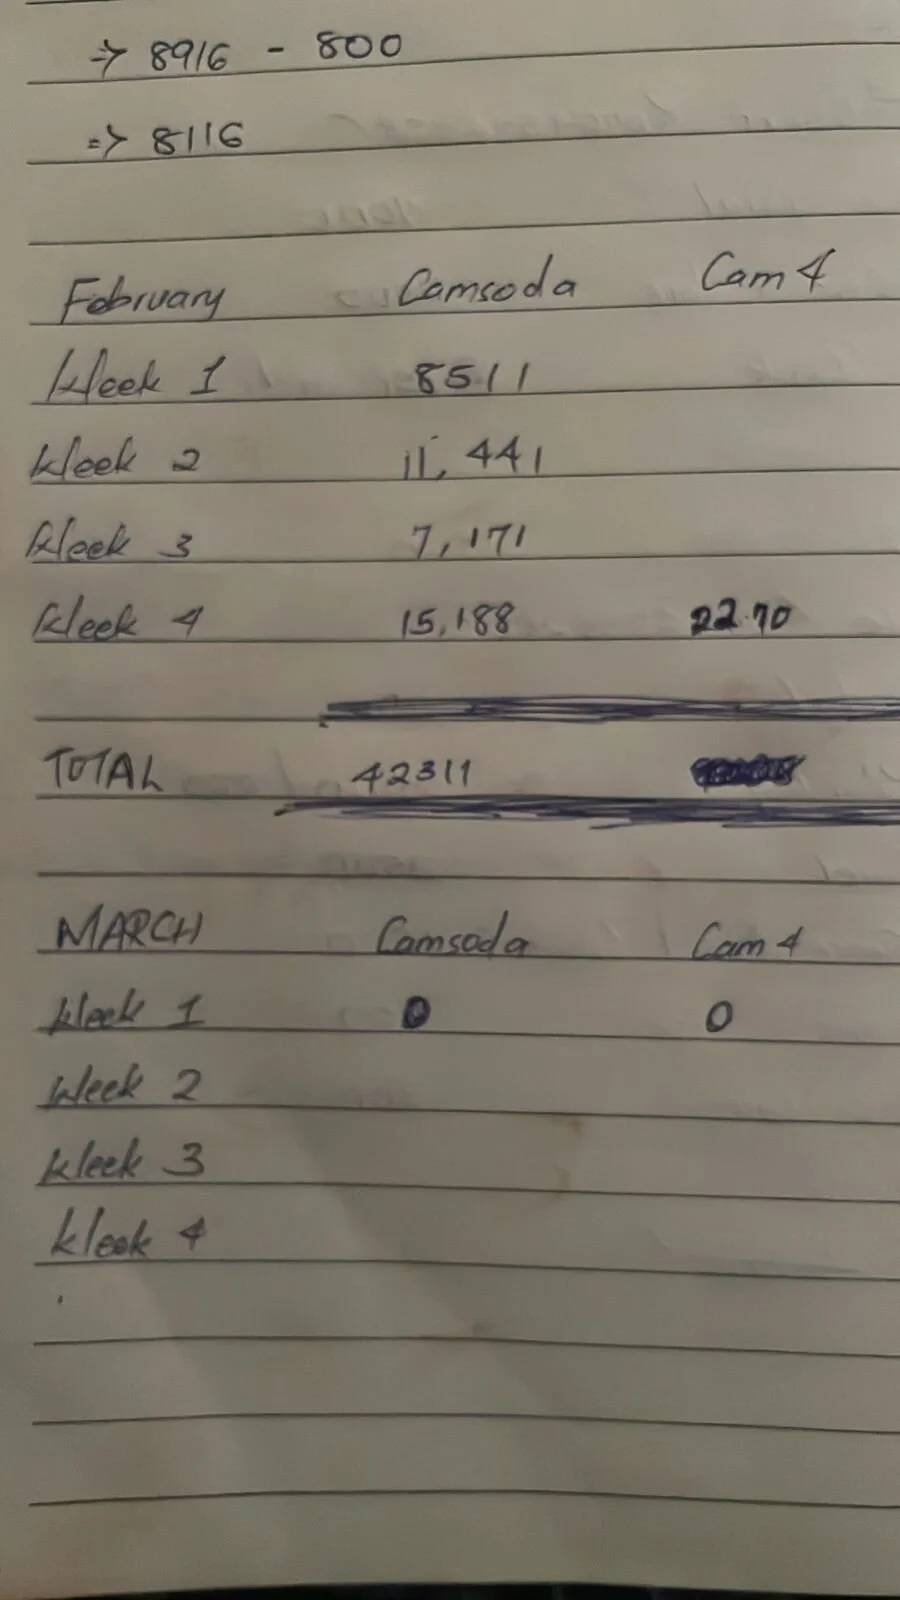 => 8916 - 800
=> 8116
February Camsoda Cam 4
Week 1 8511
Week 2 11,441
Week 3 7,171
Week 4 15,188 22.70
TOTAL 42311
MARCH Camsoda Cam 4
Week 1 0 0
Week 2
Week 3
Week 4